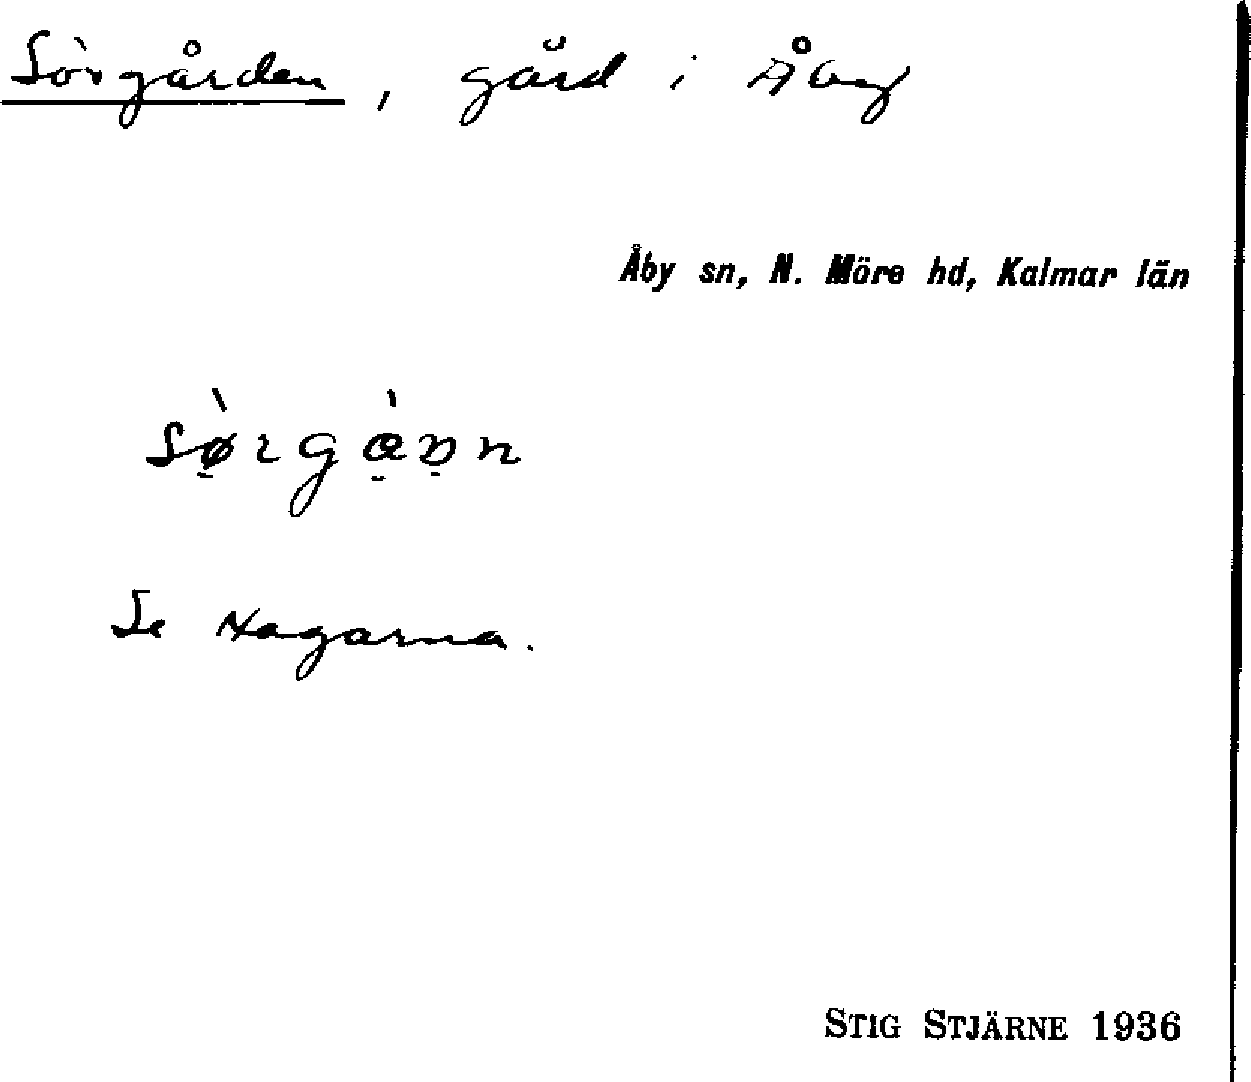 Sörgården, gård i Åby
Åby sn, N. Möre hd, Kalmar län
Se Hagarna.
STIG STJÄRNE 1936